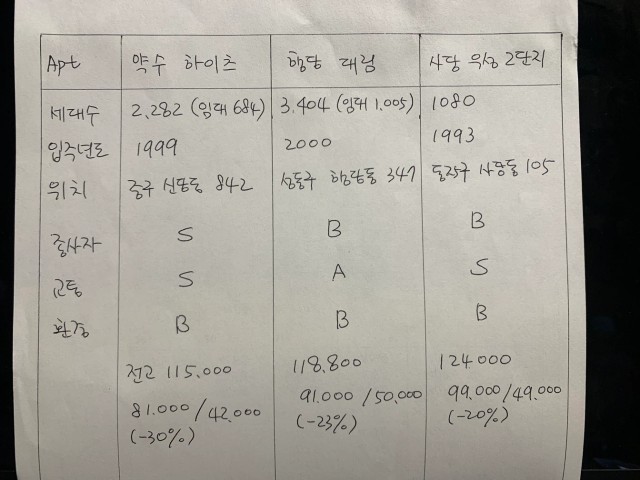 Apt 약수 하이츠 행당 대림 사당 우성 2단지
세대수 2,282 (임대 684) 3,404 (임대 1,005) 1080
입주년도 1999 2000 1993
위치 중구 신당동 842 성동구 행당동 347 동작구 사당동 105
종사자 S B B
교통 S A S
환경 B B B
전고 115,000 118,800 124000
81,000/42,000 91,000/50,000 99,000/49,000
(-30%) (-23%) (-20%)